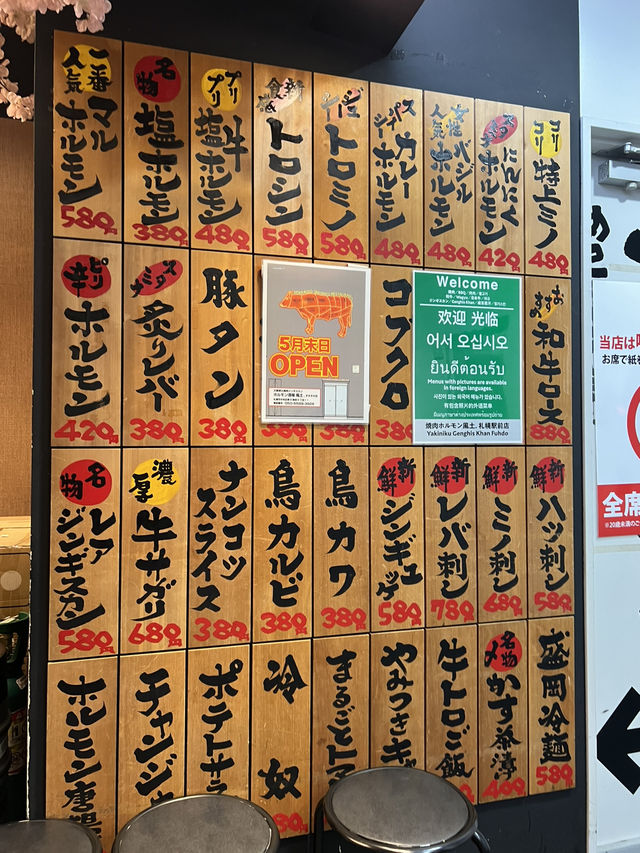 一番人気
マルホルモン
580円
名物
塩ホルモン
380円
プリプリ
牛塩ホルモン
480円
トロシン
580円
トロミノ
580円
スパイス
カレーホルモン
480円
女性人気
バジルホルモン
480円
スタミナ
にんにくホルモン
420円
コリコリ
特上ミノ
480円
ピリ辛
ホルモン
420円
スタミナ
炙りレバー
380円
豚タン
380円
5月末日
OPEN
コブクロ
380
Welcome
欢迎 光临
어서 오십시오
ยินดีต้อนรับ
Menus with pictures are available
in foreign languages.
사진이 있는 외국어 메뉴가 있습니다.
有包含照片的外语菜单
焼肉ホルモン風土. 札幌駅前店
Yakiniku Genghis Khan Fuhdo
おすすめ
和牛ロース
880円
名物
レアジンギスカン
580円
濃厚
牛サガリ
680円
ナンコツスライス
380円
鳥カルビ
380円
鳥カワ
380円
新鮮
ジンギュッゲ
580円
新鮮
レバ刺し
780円
新鮮
ミノ刺し
680円
新鮮
ハツ刺し
580円
ホルモン唐揚
チャンジャ
ポテトサラ
冷奴
まるごとトマ
やみつきキャ
牛トロご飯
名物〆
かす茶漬
400円
盛岡冷麺
580円
当店は
お席で紙
全席